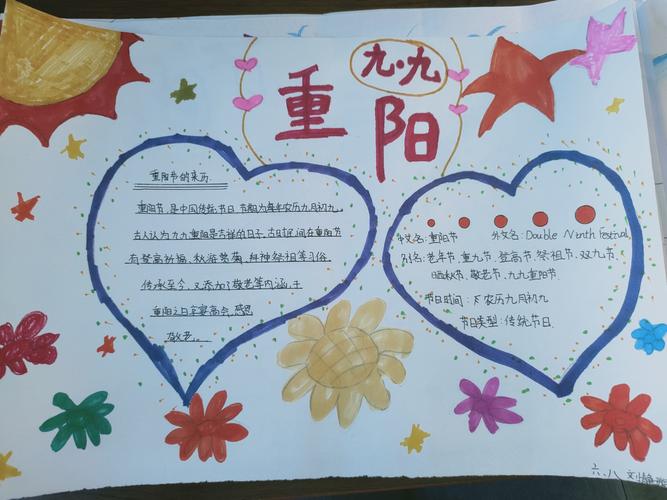 九·九
重阳
重阳节的来历
重阳节,是中国传统节日,节期为每年农历九月初九。
古人认为九九重阳是吉祥的日子,古时民间在重阳节
有登高祈福、秋游赏菊、祭神祭祖等习俗。
传承至今,又添加了敬老等内涵,于
重阳之日宴高会,感恩
敬老。
中文名:重阳节 外文名:Double Ninth Festival
别名:老年节、重九节、登高节、祭祖节、双九节、
晒秋节、敬老节、九九重阳节
节日时间:农历九月初九
节日类型:传统节日
六.八